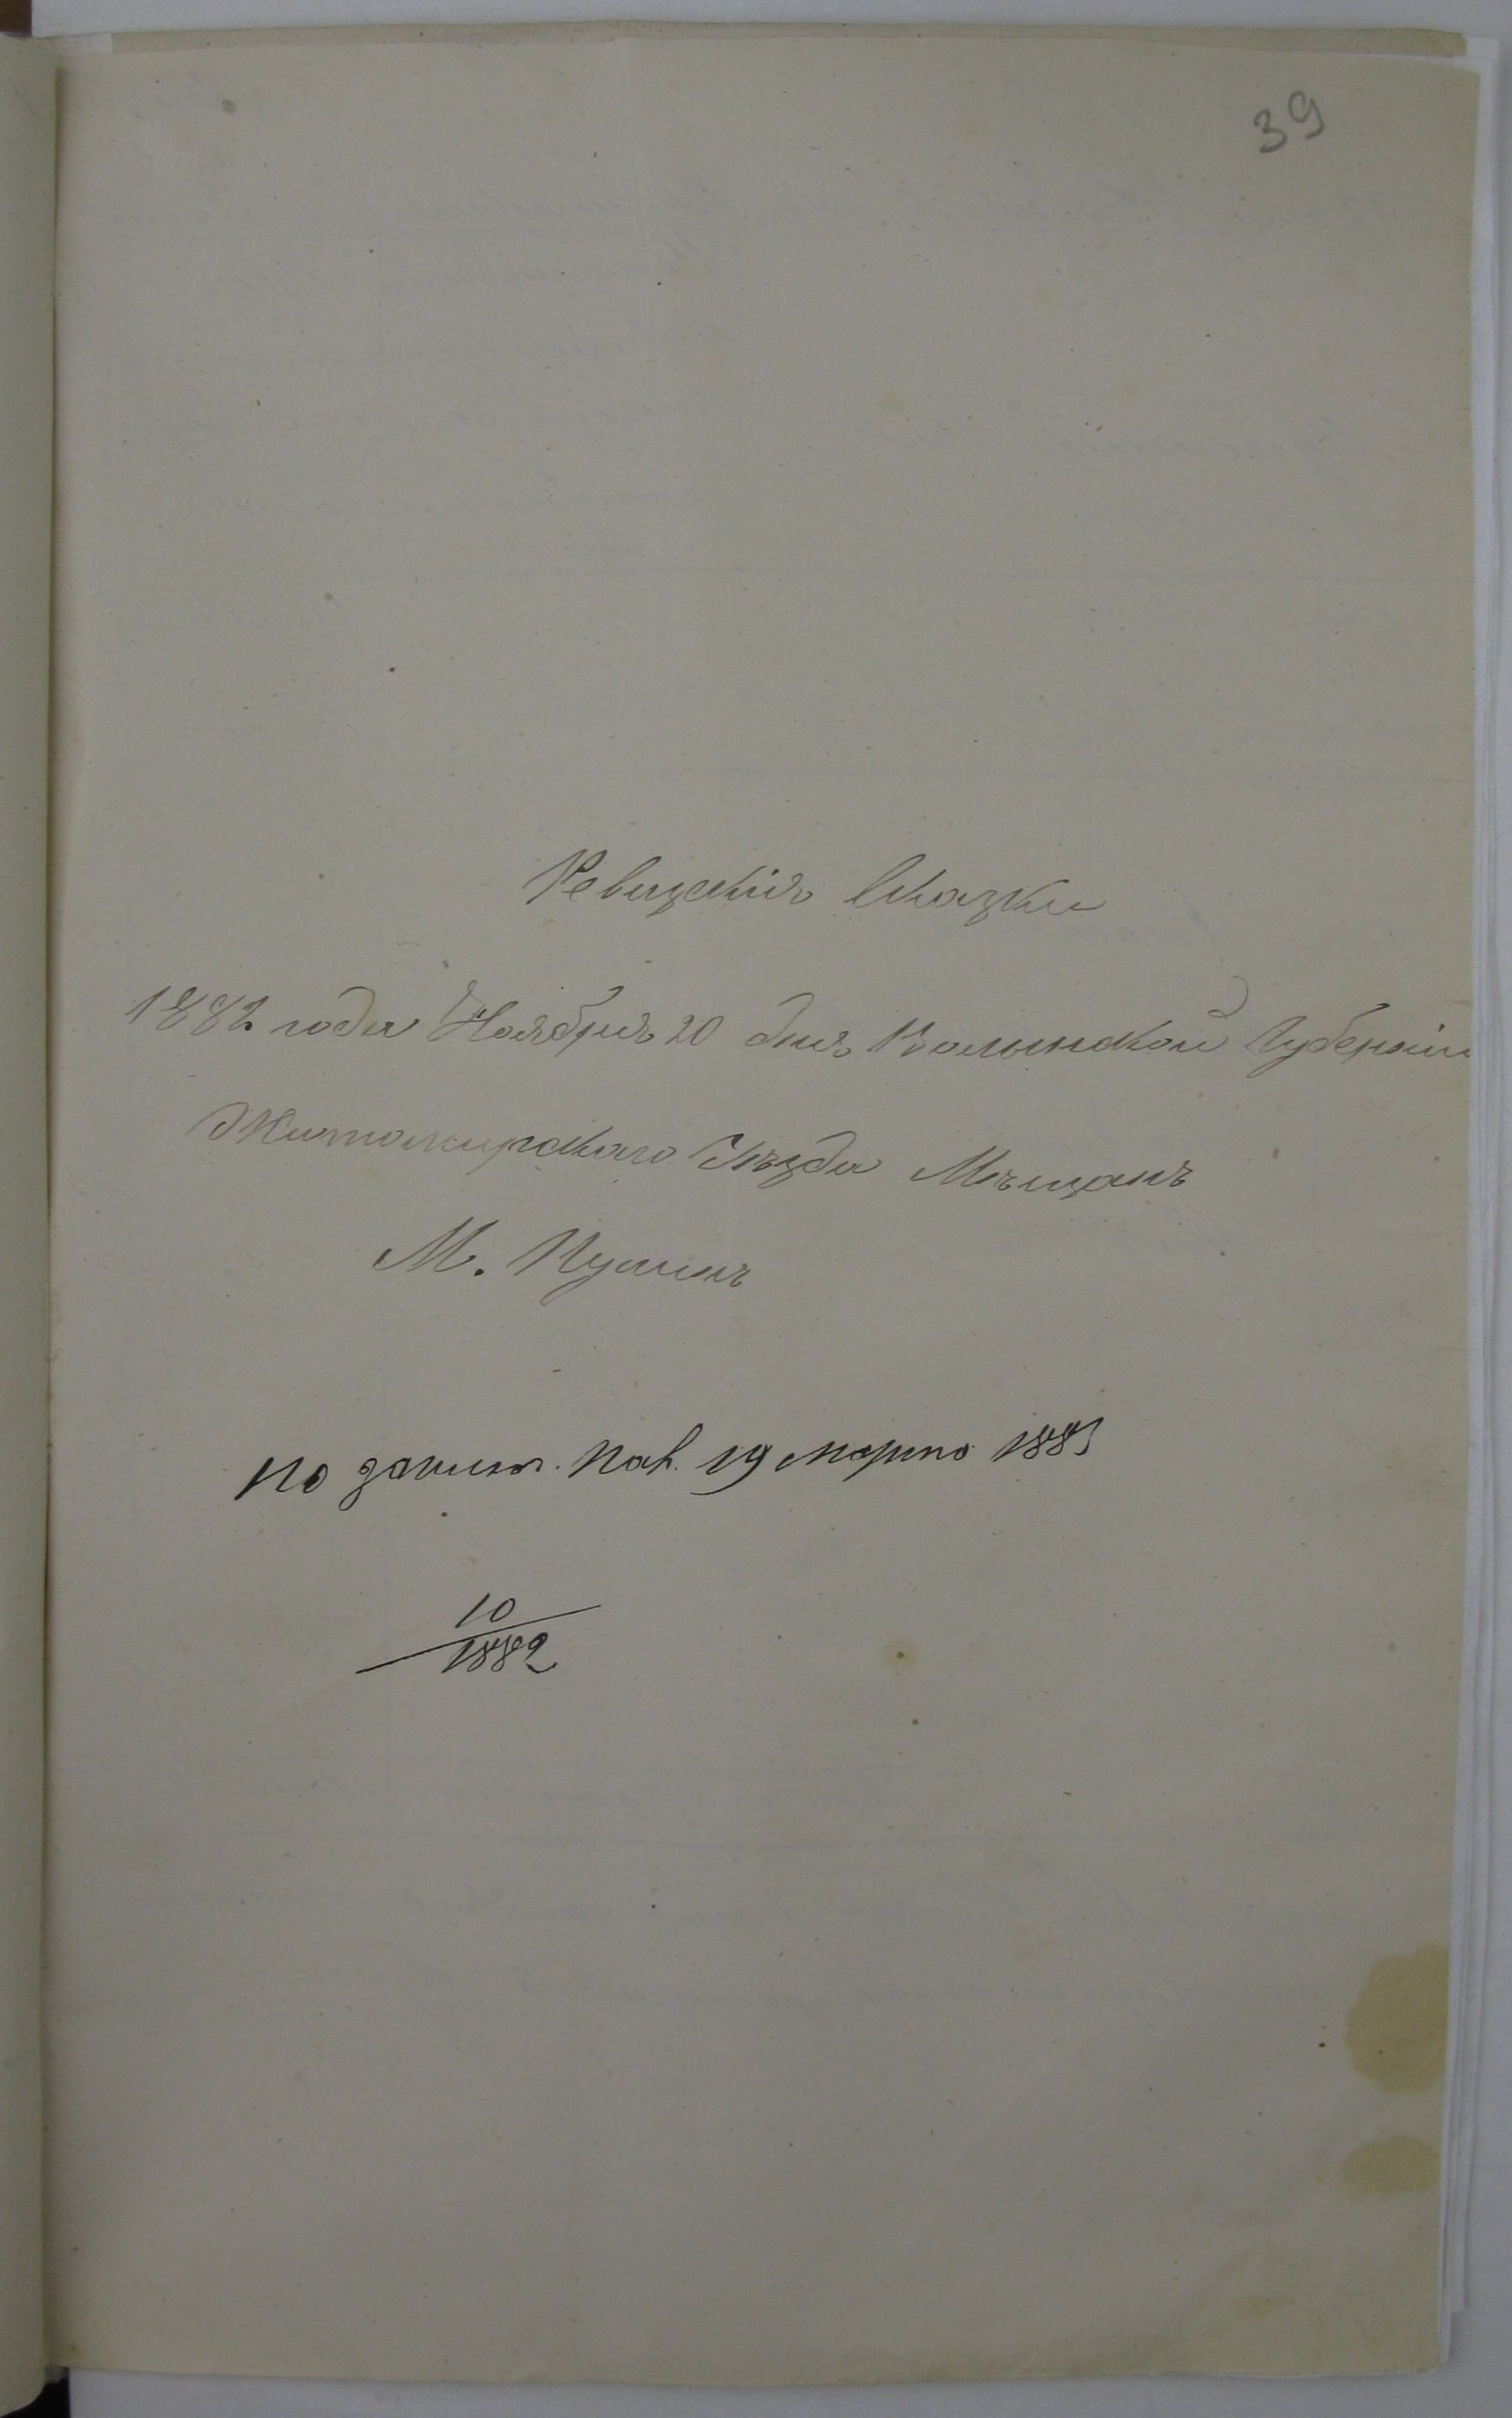 39
Ревизскія Сказки
1882 года Ноября 20 дня Волынской Губерніи
Житомирскаго Уѣзда Мѣщанъ
М. Пулинъ
По 19 марта 1883
10
1882